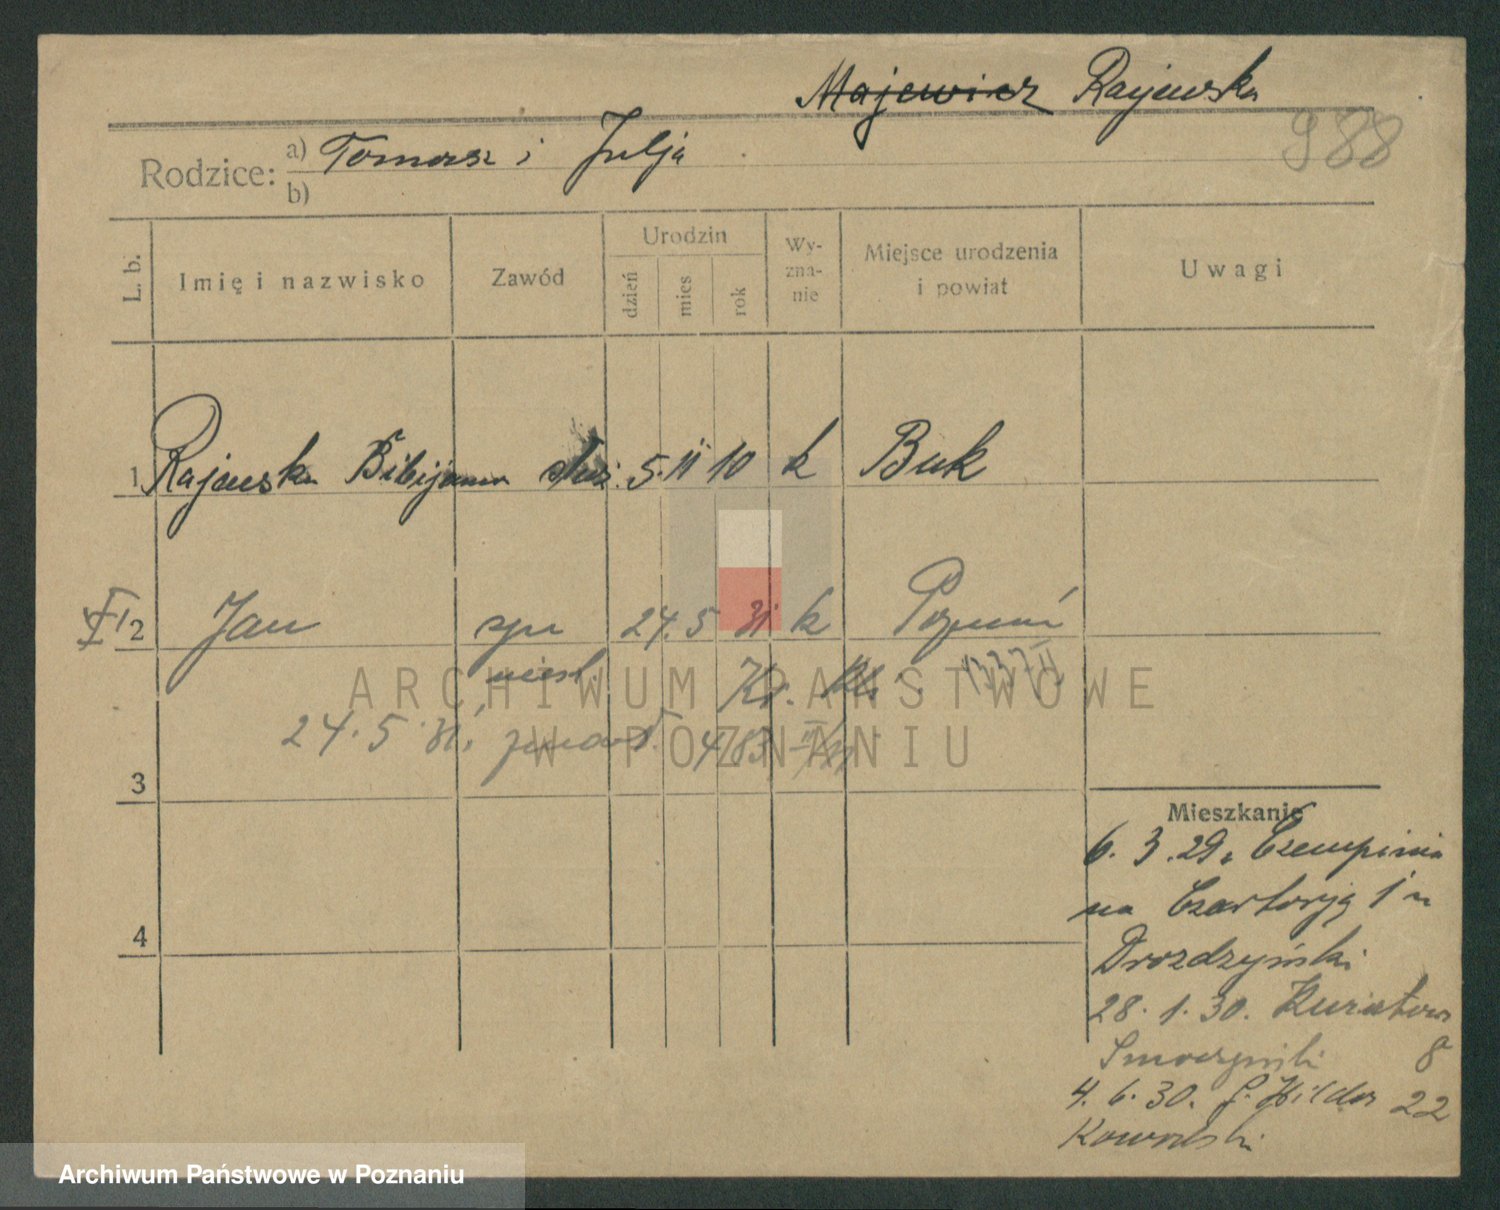 Majewicz Rajewska
988
Rodzice: a) Tomasz i Julja
b)
L. b. Imię i nazwisko Zawód Urodzin dzień mies rok Wy-zna-nie Miejsce urodzenia i powiat Uwagi
1 Rajewska Bibijanna służ. 5. 11 10 k Buk
2 Jan syn 24. 5 31 k Poznań
nieśl.
24. 5. 31.
3
4
Mieszkanie
6. 3. 29. Czempinia
na Czartorją 1
Drozdzyński
28. 1. 30.
8
4. 6. 30. 22
Kowalski
ARCHIWUM PAŃSTWOWE
W POZNANIU
Archiwum Państwowe w Poznaniu